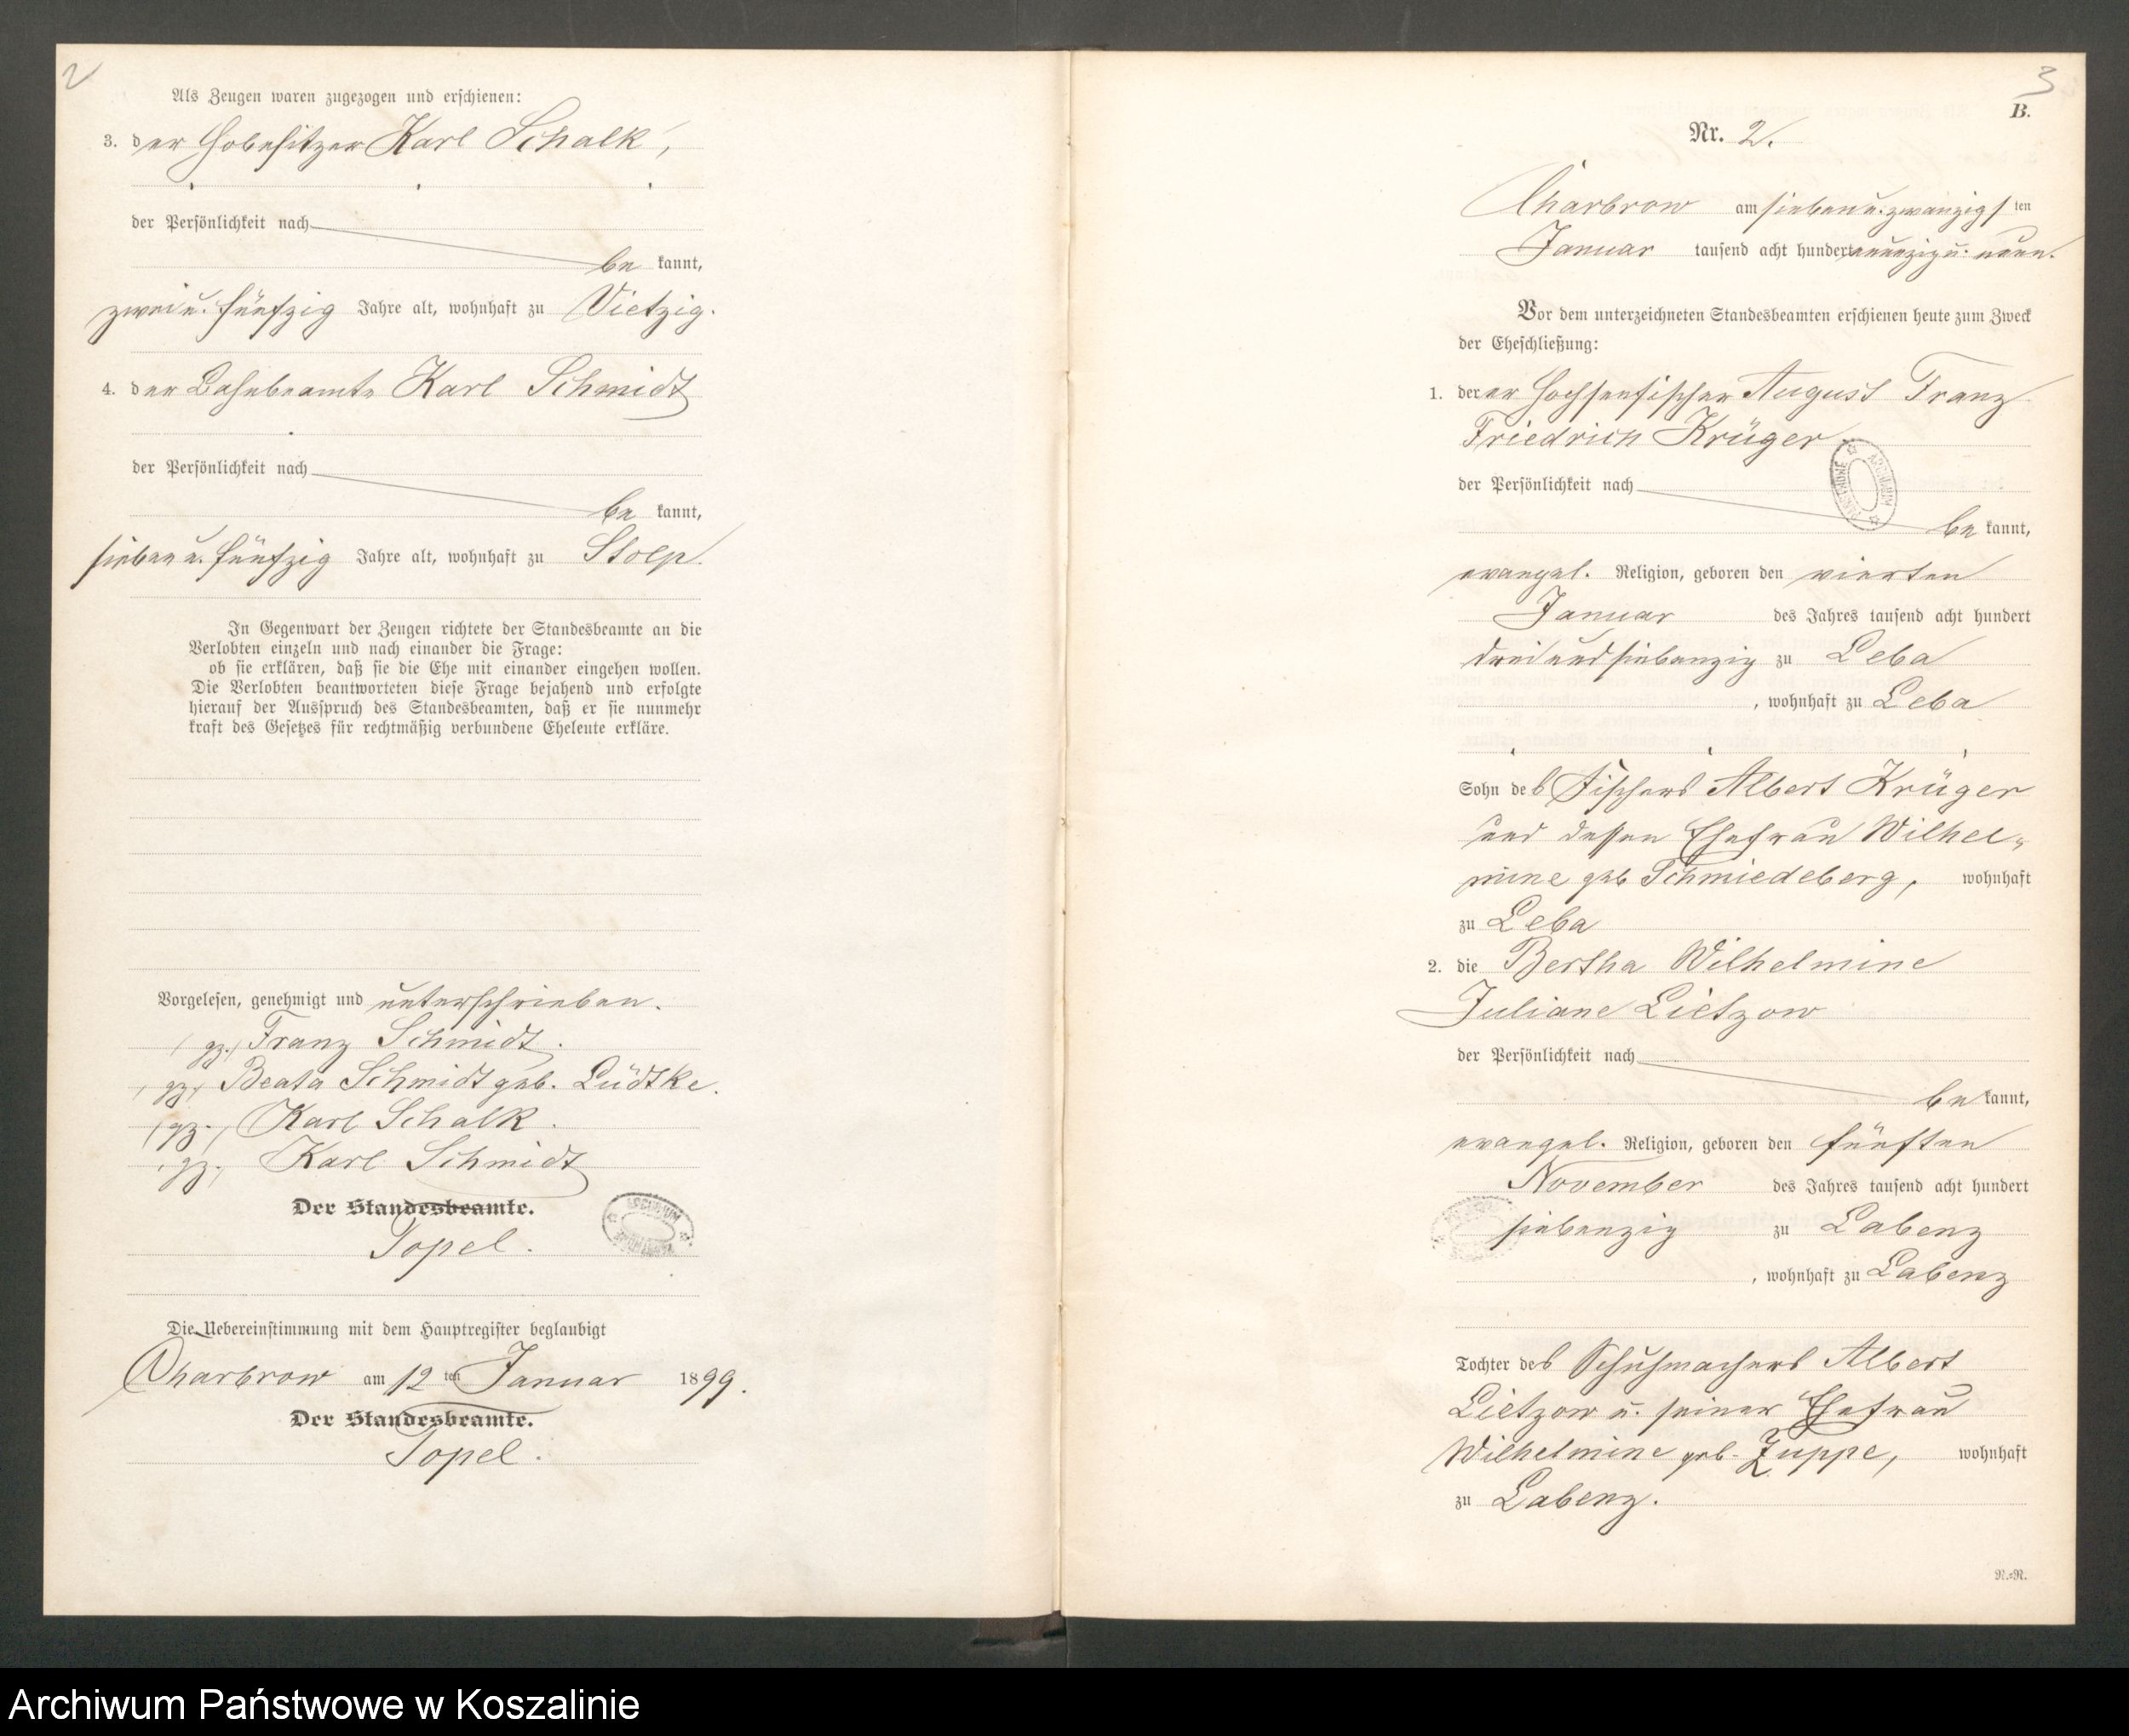 2
Als Zeugen waren zugezogen und erschienen:
3. der Hofbesitzer Karl Schalk,
der Persönlichkeit nach
be kannt,
zwei u. fünfzig Jahre alt, wohnhaft zu Vietzig.
4. der Bahnbeamte Karl Schmidt
der Persönlichkeit nach
be kannt,
sieben u. fünfzig Jahre alt, wohnhaft zu Stolp.
In Gegenwart der Zeugen richtete der Standesbeamte an die
Verlobten einzeln und nach einander die Frage:
ob sie erklären, daß sie die Ehe mit einander eingehen wollen.
Die Verlobten beantworteten diese Frage bejahend und erfolgte
hierauf der Ausspruch des Standesbeamten, daß er sie nunmehr
kraft des Gesetzes für rechtmäßig verbundene Eheleute erkläre.
Vorgelesen, genehmigt und unterschrieben.
(gz.) Franz Schmidt.
(gz.) Beata Schmidt geb. Lüdtke.
(gz.) Karl Schalk.
(gz.) Karl Schmidt
Der Standesbeamte.
Topel.
Die Uebereinstimmung mit dem Hauptregister beglaubigt
Charbrow am 12 ten Januar 1899.
Der Standesbeamte.
Topel.
3
B.
Nr. 2.
Charbrow am sieben u. zwanzigs ten
Januar tausend acht hundert neunzig u. neun.
Vor dem unterzeichneten Standesbeamten erschienen heute zum Zweck
der Eheschließung:
1. der er Hochseefischer August Franz
Friedrich Krüger
der Persönlichkeit nach
be kannt,
evangel. Religion, geboren den vierten
Januar des Jahres tausend acht hundert
drei und siebenzig zu Leba
, wohnhaft zu Leba
Sohn des Fischers Albert Krüger
und dessen Ehefrau Wilhel-
mine geb Schmiedeberg, wohnhaft
zu Leba
2. die Bertha Wilhelmine
Juliane Lietzow
der Persönlichkeit nach
be kannt,
evangel. Religion, geboren den fünften
November des Jahres tausend acht hundert
siebenzig zu Labenz
, wohnhaft zu Labenz
Tochter des Schuhmachers Albert
Lietzow u. seiner Ehefrau
Wilhelmine geb. Zuppe, wohnhaft
zu Labenz.
N.=N.
Archiwum Państwowe w Koszalinie